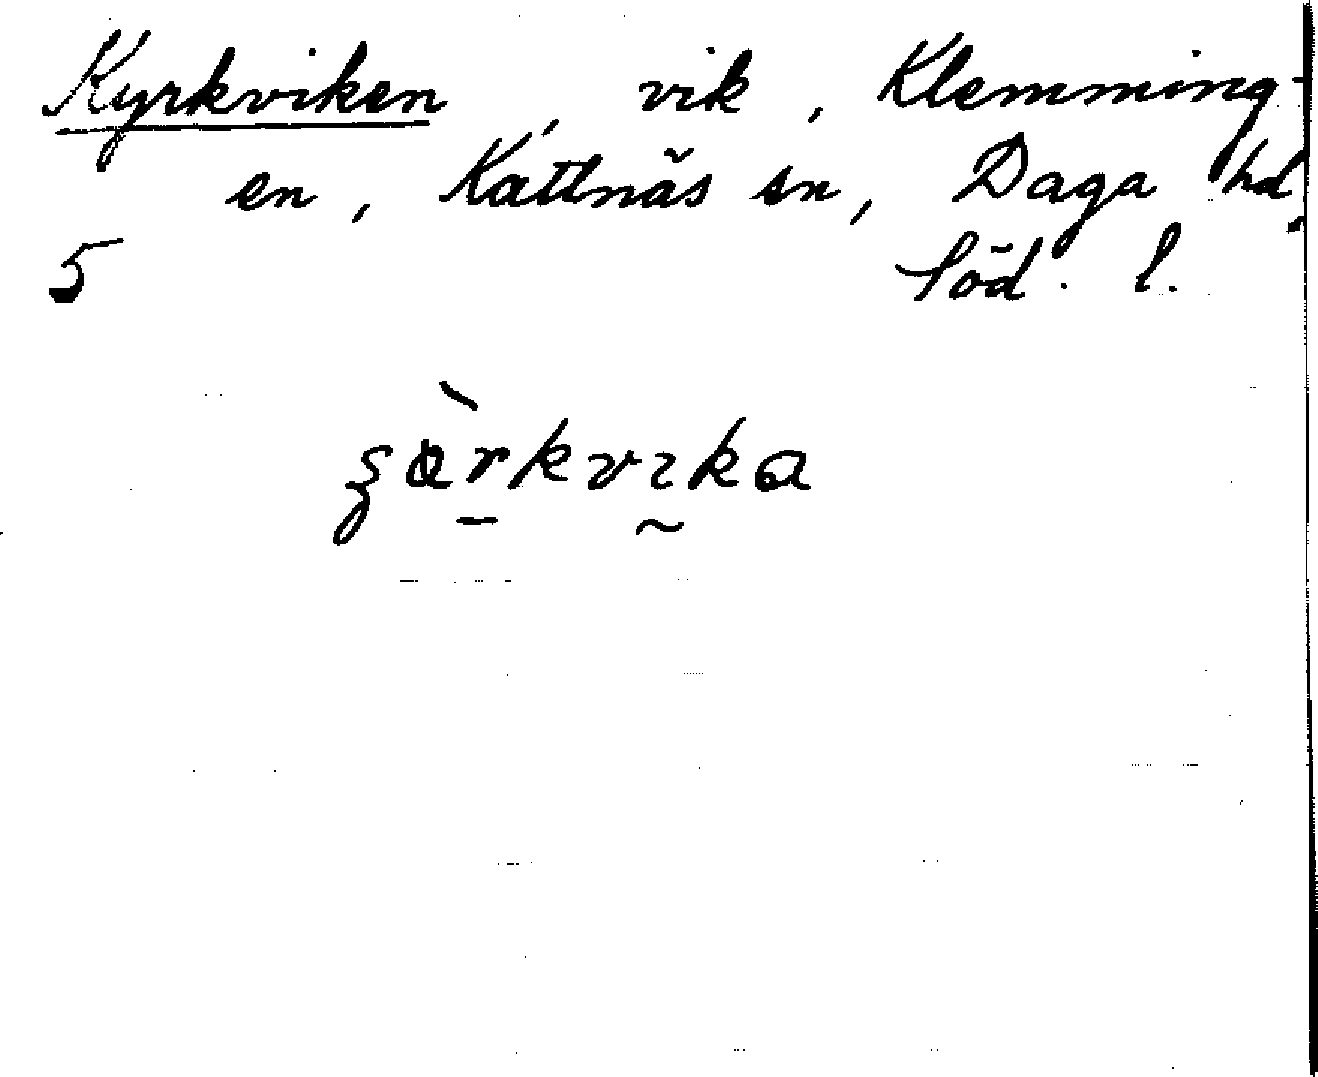 Kyrkviken, vik, Klemming-
en, Kattnäs sn, Daga hd,
5 Söd. l.